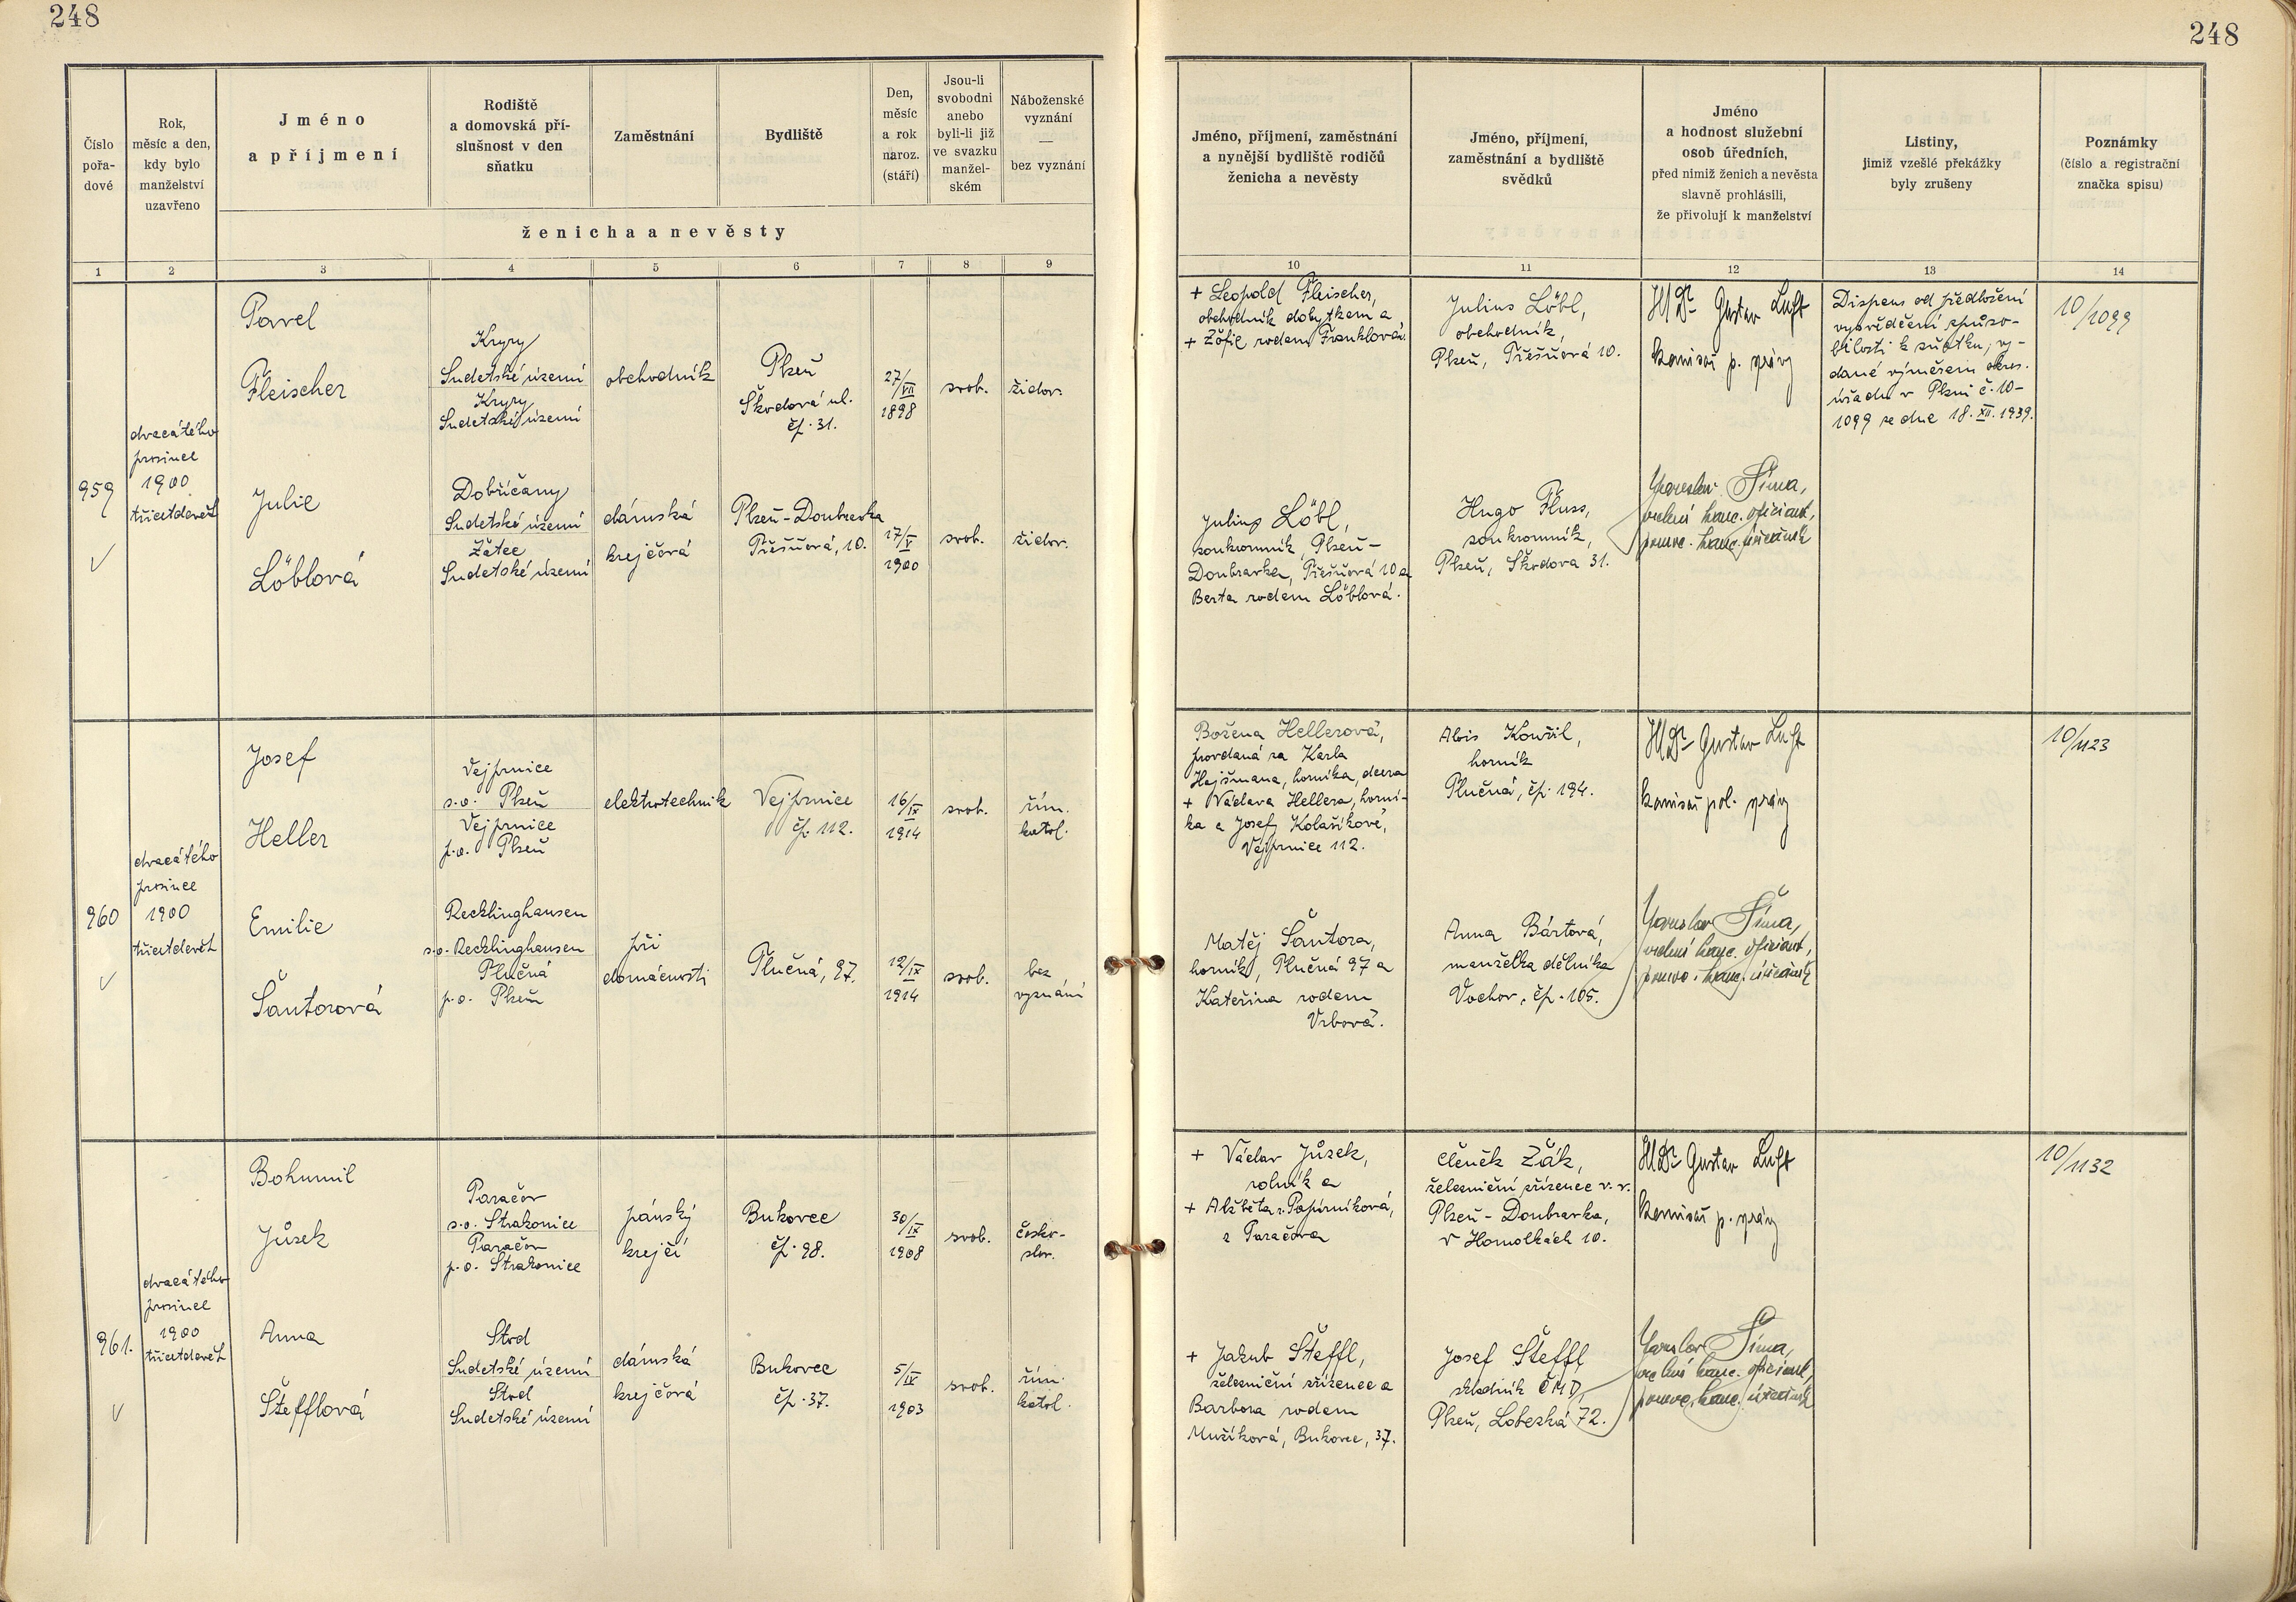 248
248
Číslo
pořa-
dové
Rok,
měsíc a den,
kdy bylo
manželství
uzavřeno
Jméno
a příjmení
Rodiště
a domovská pří-
slušnost v den
sňatku
Zaměstnání
Bydliště
Den,
měsíc
a rok
naroz.
(stáří)
Jsou-li
svobodni
anebo
byli-li již
ve svazku
manžel-
ském
Náboženské
vyznání
—
bez vyznání
ženicha a nevěsty
Jméno, příjmení, zaměstnání
a nynější bydliště rodičů
ženicha a nevěsty
Jméno, příjmení,
zaměstnání a bydliště
svědků
Jméno
a hodnost služební
osob úředních,
před nimiž ženich a nevěsta
slavně prohlásili,
že přivolují k manželství
Listiny,
jimiž vzešlé překážky
byly zrušeny
Poznámky
(číslo a registrační
značka spisu)
1 2 3 4 5 6 7 8 9 10 11 12 13 14
959
dvacátého
prosince
1900
třicetdevět
Pavel
Fleischer
Kryry
Sudetské území
Kryry
Sudetské území
obchodník
Plzeň
Škodová ul.
čp. 31.
27/VII
1898
svob.
židov.
Julie
Löblová
Dobříčany
Sudetské území
Žatec
Sudetské území
dámská
krejčová
Plzeň-Doubravka
Třešňová, 10.
17/V
1900
svob.
židov.
+ Leopold Fleischer,
obchodník dobytkem a
+ Žofie rodem Franklová.
Julius Löbl,
soukromník, Plzeň-
Doubravka, Třešňová 10 a
Berta rodem Löblová.
Julius Löbl,
obchodník,
Plzeň, Třešňová 10.
Hugo Fluss,
soukromník,
Plzeň, Škodova 31.
Dr Gustav Luft
komisař p. správy
Jaroslav Šíma,
kanc. oficiant,
kanc.
Dispens od předložení
vysvědčení způso-
bilosti k sňatku, vy-
dané výměrem okres.
úřadu v Plzni č. 10-
1099 ze dne 18. XII. 1939.
10/1099
960
dvacátého
prosince
1900
třicetdevět
Josef
Heller
Vejprnice
s.o. Plzeň
Vejprnice
p.o. Plzeň
elektrotechnik
Vejprnice
čp. 112.
16/IX
1914
svob.
řím.
katol.
Emilie
Šantorová
Recklinghausen
s.o. Recklinghausen
Tlučná
p.o. Plzeň
při
domácnosti
Tlučná, 97.
12/IX
1914
svob.
bez
vyznání
Božena Hellerová,
provdaná za Karla
Hejšmana, horníka, dcera
+ Václava Hellera, horní-
ka a Josefy Kolaříkové,
Vejprnice 112.
Matěj Šantora,
horník, Tlučná 97 a
Kateřina rodem
Vrbová.
Alois Kouřil,
horník
Tlučná, čp. 194.
Anna Bártová,
manželka dělníka
Vochov, čp. 105.
Dr Gustav Luft
komisař pol. správy
Jaroslav Šíma,
kanc. oficiant,
kanc.
10/1123
961.
dvacátého
prosince
1900
třicetdevět
Bohumil
Jůzek
Paračov
s.o. Strakonice
Paračov
p.o. Strakonice
pánský
krejčí
Bukovec
čp. 98.
30/IX
1908
svob.
česko-
slov.
Anna
Štefflová
Stod
Sudetské území
Stod
Sudetské území
dámská
krejčová
Bukovec
čp. 37.
5/IV
1903
svob.
řím.
katol.
+ Václav Jůzek,
rolník a
+ Alžběta r. Papírníková,
z Paračova
+ Jakub Šteffl,
železniční zřízenec a
Barbora rodem
Mužíková, Bukovec, 37.
Čeněk Žák,
železniční zřízenec v. v.
Plzeň-Doubravka,
v Homolkách 10.
Josef Šteffl
skladník ČMD,
Plzeň, Lobezká 72.
Dr Gustav Luft
komisař p. správy
Jaroslav Šíma,
kanc. oficiant,
kanc.
10/1132